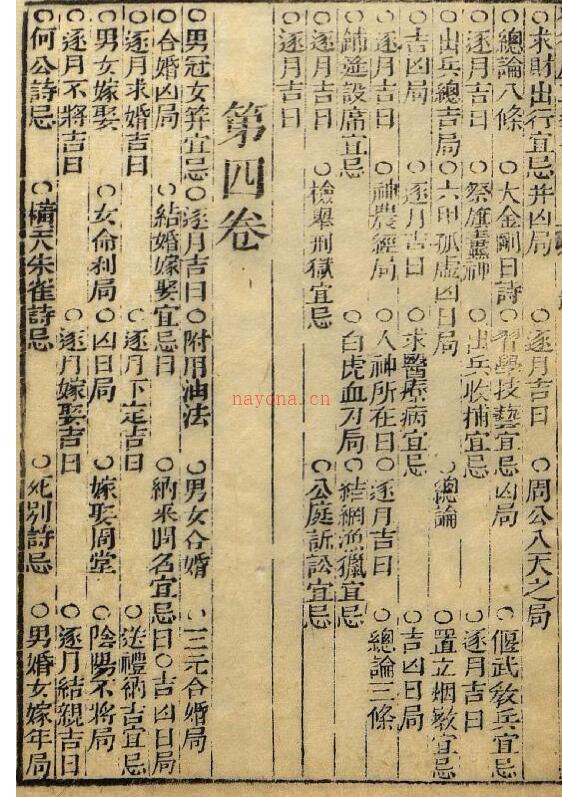 ○求財出行宜忌并凶局 ○逐月吉日 ○周公八天之局
○總論八條 ○大金剛日詩 ○習學技藝宜忌凶局 ○偃武敎兵宜忌
○逐月吉日 ○祭旗纛神 ○出兵收捕宜忌 ○逐月吉日
○出兵總吉局 ○六甲孤虛凶日局 ○總論 ○置立烟墩宜忌
○吉凶局 ○逐月吉日 ○求醫療病宜忌 ○吉凶日局
○逐月吉日 ○神農經局 ○人神所在日 ○逐月吉日 ○總論三條
○鋪筵設席宜忌 ○白虎血刃局 ○結網漁獵宜忌
○逐月吉日 ○檢舉刑獄宜忌 ○公庭訴訟宜忌
○逐月吉日
第四卷
○男冠女笄宜忌 ○逐月吉日 ○附用油法 ○男女合婚 ○三元合婚局
○合婚凶局 ○結婚嫁娶宜忌日 ○納采問名宜忌日 ○吉凶日局
○逐月求婚吉日 ○逐月下定吉日 ○送禮納吉宜忌
○男女嫁娶 ○女命利局 ○凶日局 ○嫁娶周堂 ○陰陽不將局
○逐月不將吉日 ○逐月嫁娶吉日 ○逐月結親吉日
○何公詩忌 ○橫天朱雀詩忌 ○死别詩忌 ○男婚女嫁年局
nayona.cn